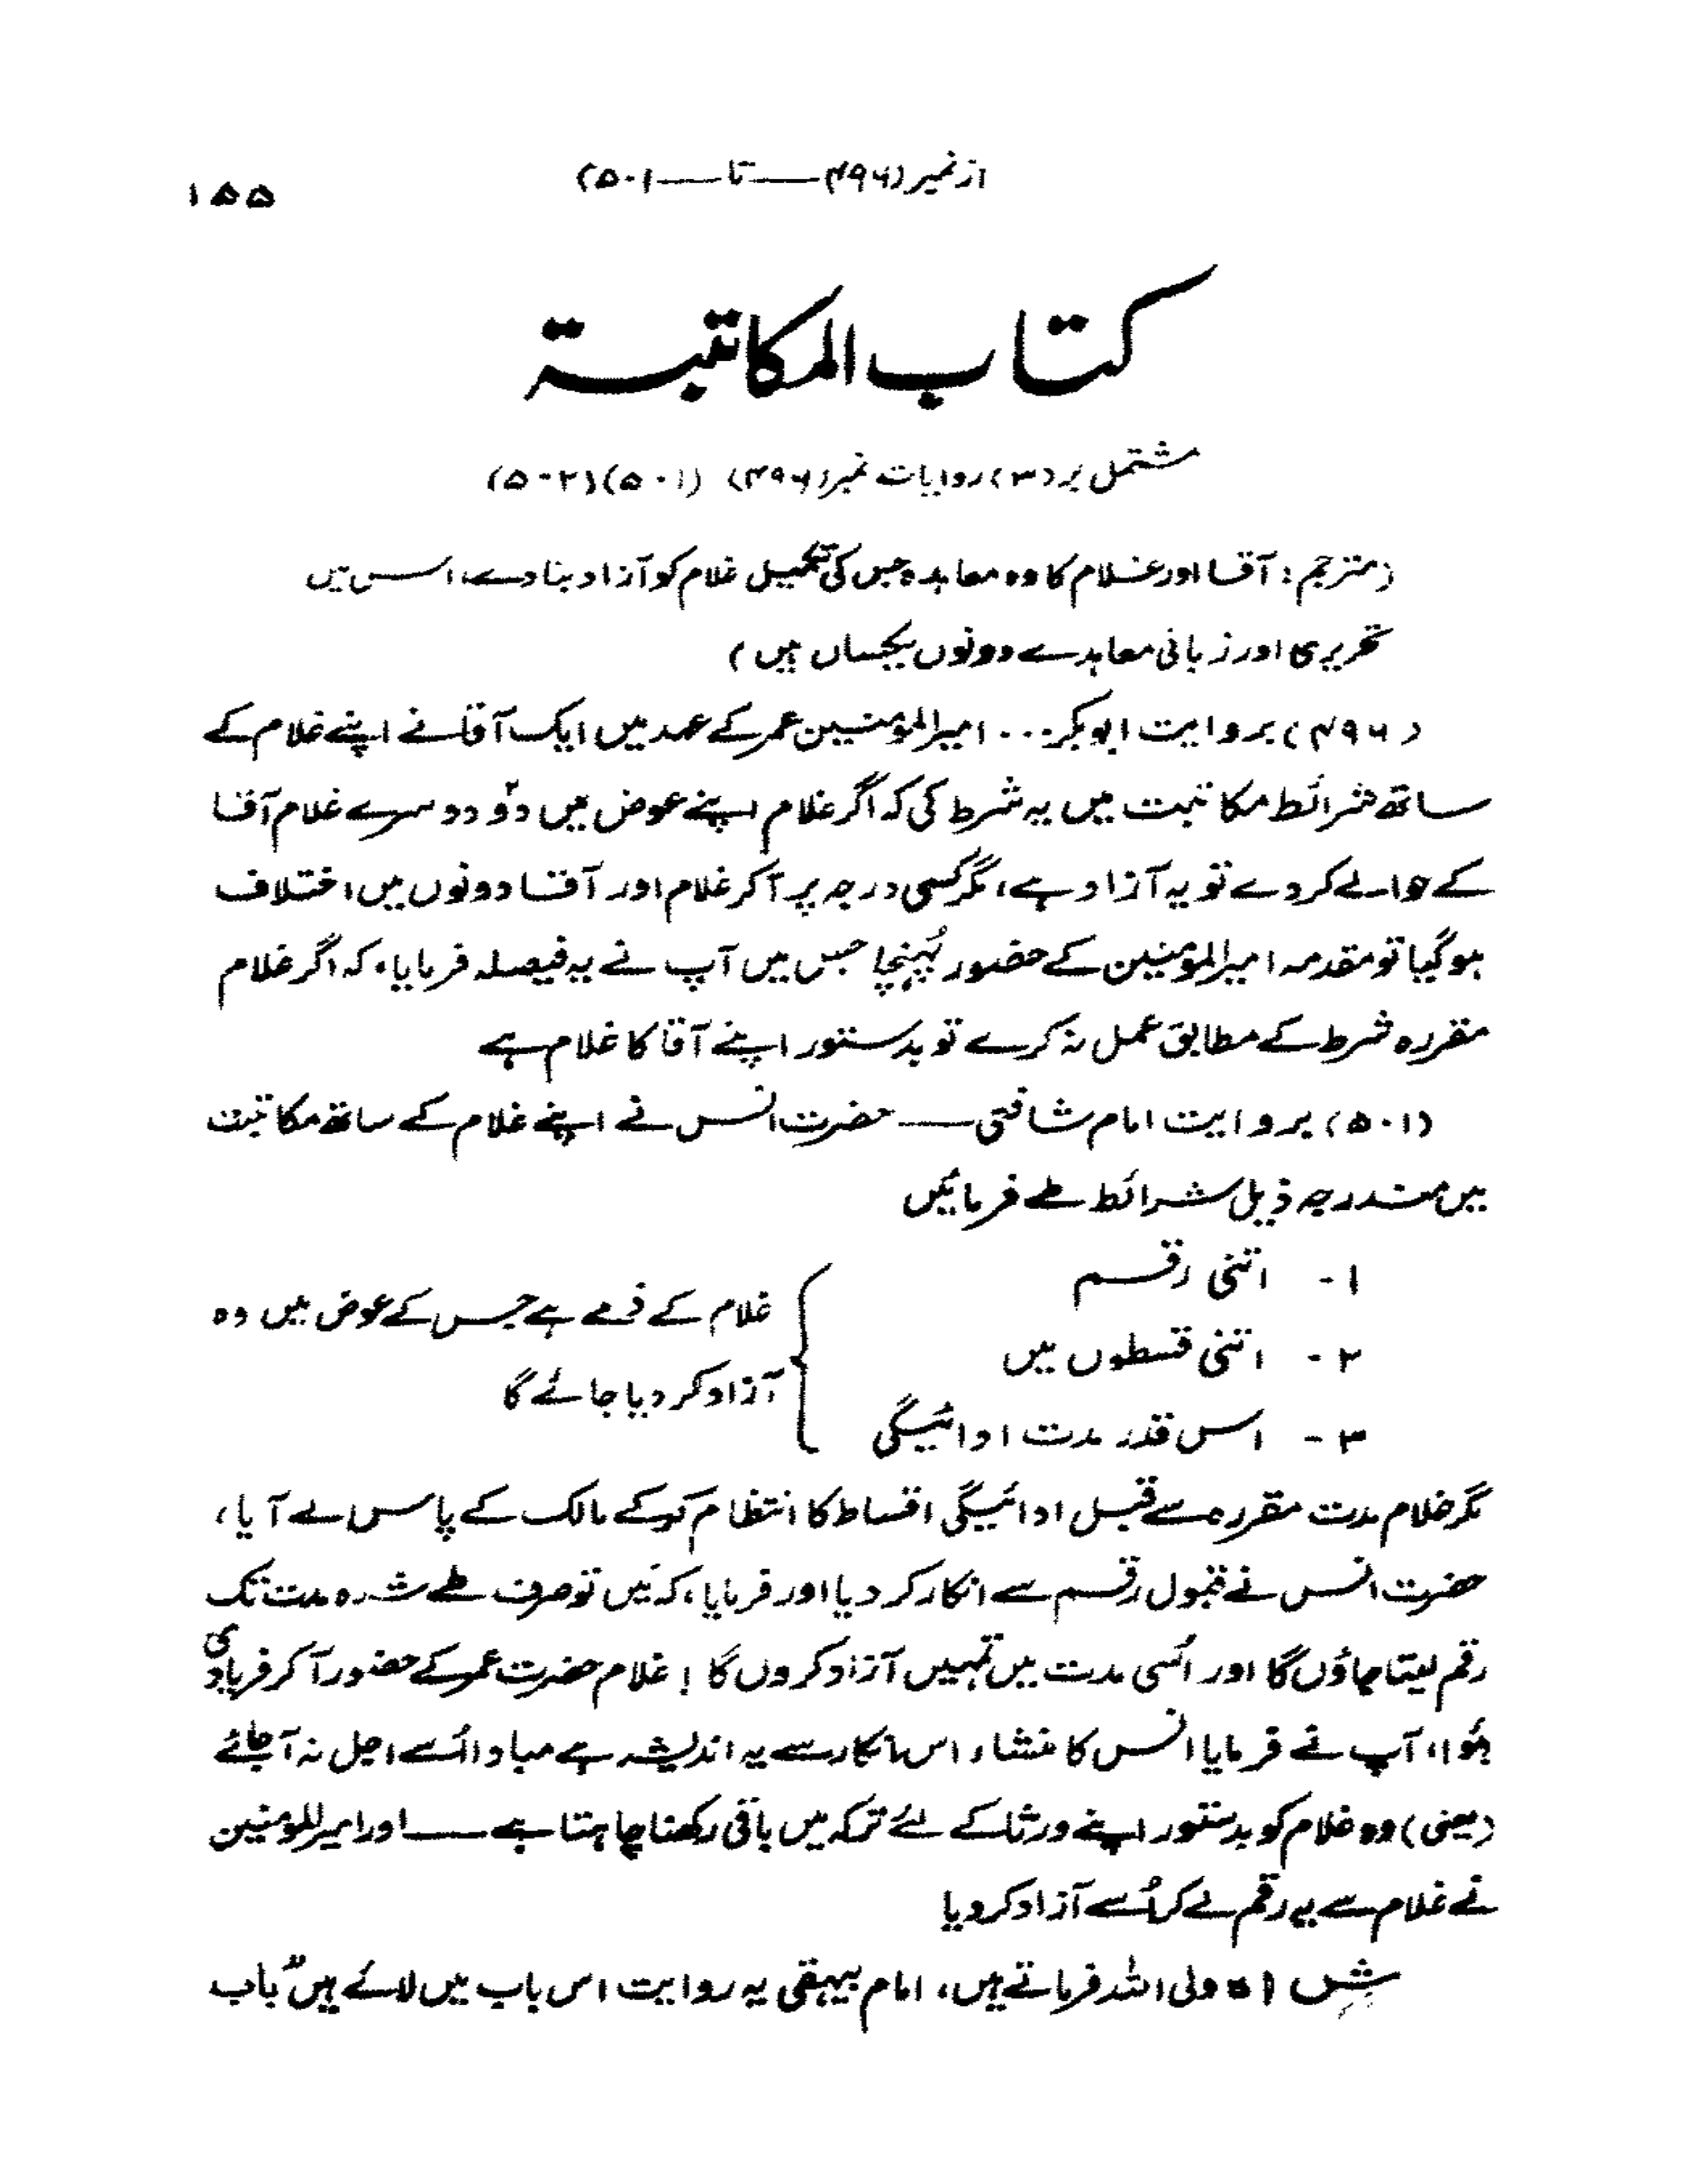 از نمبر (۴۹۶ —— تا —— ۵۰۱)
۱۵۵
کتاب المکاتبة
مشتمل بر (۳) روایات نمبر (۴۹۶) (۵۰۱) (۵۰۲)
(مترجم: آقا اور غلام کا وہ معاہدہ جس کی تکمیل غلام کو آزاد بنا دے، اس میں
تحریری اور زبانی معاہدے دونوں یکساں ہیں)
(۴۹۶) بروایت ابوبکر... امیرالمؤمنین عمر کے عہد میں ایک آقا نے اپنے غلام کے
ساتھ شرائط مکاتبت میں یہ شرط کی کہ اگر غلام اپنے عوض میں دو دوسرے غلام آقا
کے حوالے کر دے تو یہ آزاد ہے، مگر کسی درجہ پر آکر غلام اور آقا دونوں میں اختلاف
ہو گیا تو مقدمہ امیرالمؤمنین کے حضور پہنچا جس میں آپ نے یہ فیصلہ فرمایا، کہ اگر غلام
مقررہ شرط کے مطابق عمل نہ کرے تو بدستور اپنے آقا کا غلام ہے
(۵۰۱) بروایت امام شافعی —— حضرت انس نے اپنے غلام کے ساتھ مکاتبت
میں مندرجہ ذیل شرائط طے فرمائیں
۱- اتنی رقم
۲- اتنی قسطوں میں
۳- اس قدر مدت ادائیگی
غلام کے ذمے ہے جس کے عوض میں وہ
آزاد کر دیا جائے گا
مگر غلام مدت مقررہ سے قبل ادائیگی اقساط کا انتظام کر کے مالک کے پاس لے آیا،
حضرت انس نے قبول رقم سے انکار کر دیا اور فرمایا، کہ میں تو صرف طے شدہ مدت تک
رقم لیتا جاؤں گا اور اُسی مدت میں تمہیں آزاد کروں گا! غلام حضرت عمر کے حضور آکر فریادی
ہُوا، آپ نے فرمایا انس کا منشاء اس انکار سے یہ اندیشہ ہے مبادا اُسے اجل نہ آ جائے
(یعنی) وہ غلام کو بدستور اپنے ورثا کے لئے ترکہ میں باقی رکھنا چاہتا ہے —— اور امیرالمؤمنین
نے غلام سے یہ رقم لے کر اُسے آزاد کر دیا
ش اہ ولی اللہ فرماتے ہیں، امام بیہقی یہ روایت اس باب میں لائے ہیں "باب